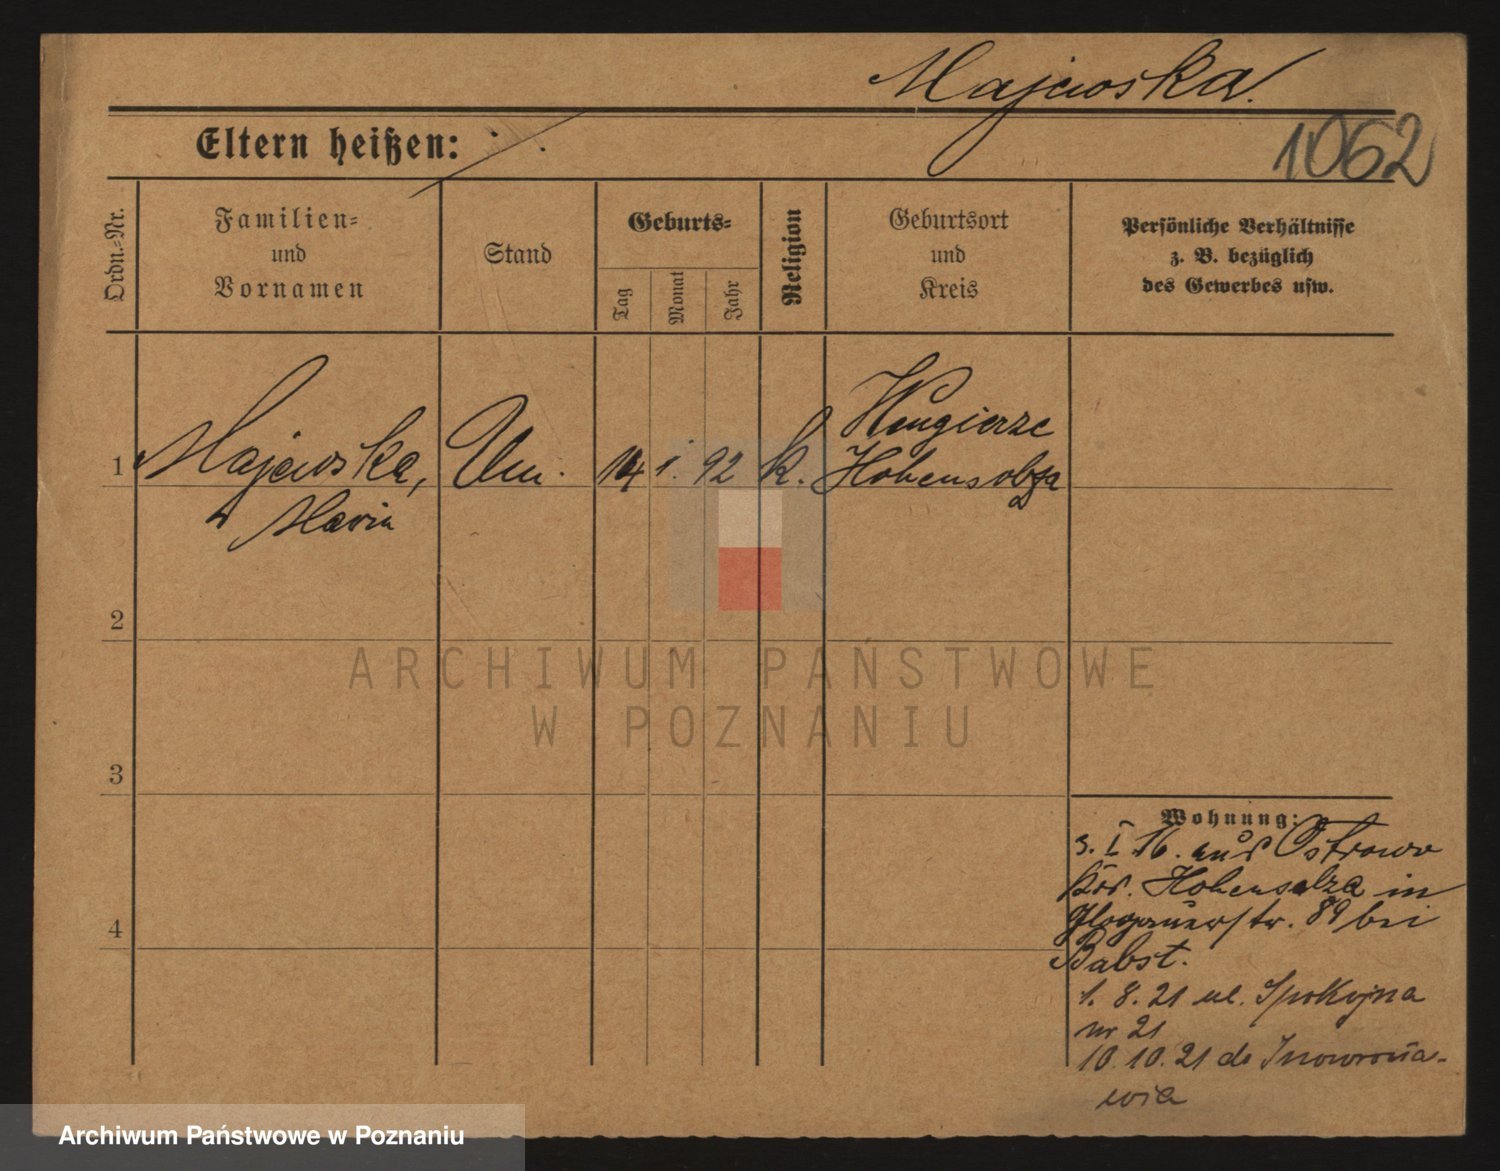 Majewska.
1062
Eltern heißen: ./.
Ordn.=Nr.
Familien=
und
Vornamen
Stand
Geburts=
Tag
Monat
Jahr
Religion
Geburtsort
und
Kreis
Persönliche Verhältnisse
z. B. bezüglich
des Gewerbes usw.
1 Majewska, 14 1. 92 k.
Maria
Hohensalza
2
3
Wohnung:
3. I 16. aus Ostrowo
Krs. Hohensalza in
Glogauerstr. 89 bei
Babst.
4
1. 8. 21 ul. Spokojna
nr 21
10. 10. 21 do Inowrocła-
wia
ARCHIWUM PAŃSTWOWE
W POZNANIU
Archiwum Państwowe w Poznaniu